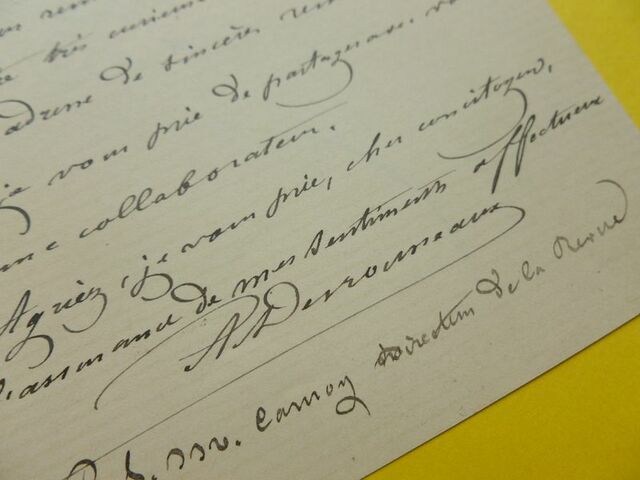 très curieux
adresse de sincères rem
je vous prie de partager avec vo
collaborateur.
Agréez, je vous prie, cher concitoyen,
l'assurance de mes sentiments affectueux
A. Desrousseaux
Carnoy Directeur de la Revue